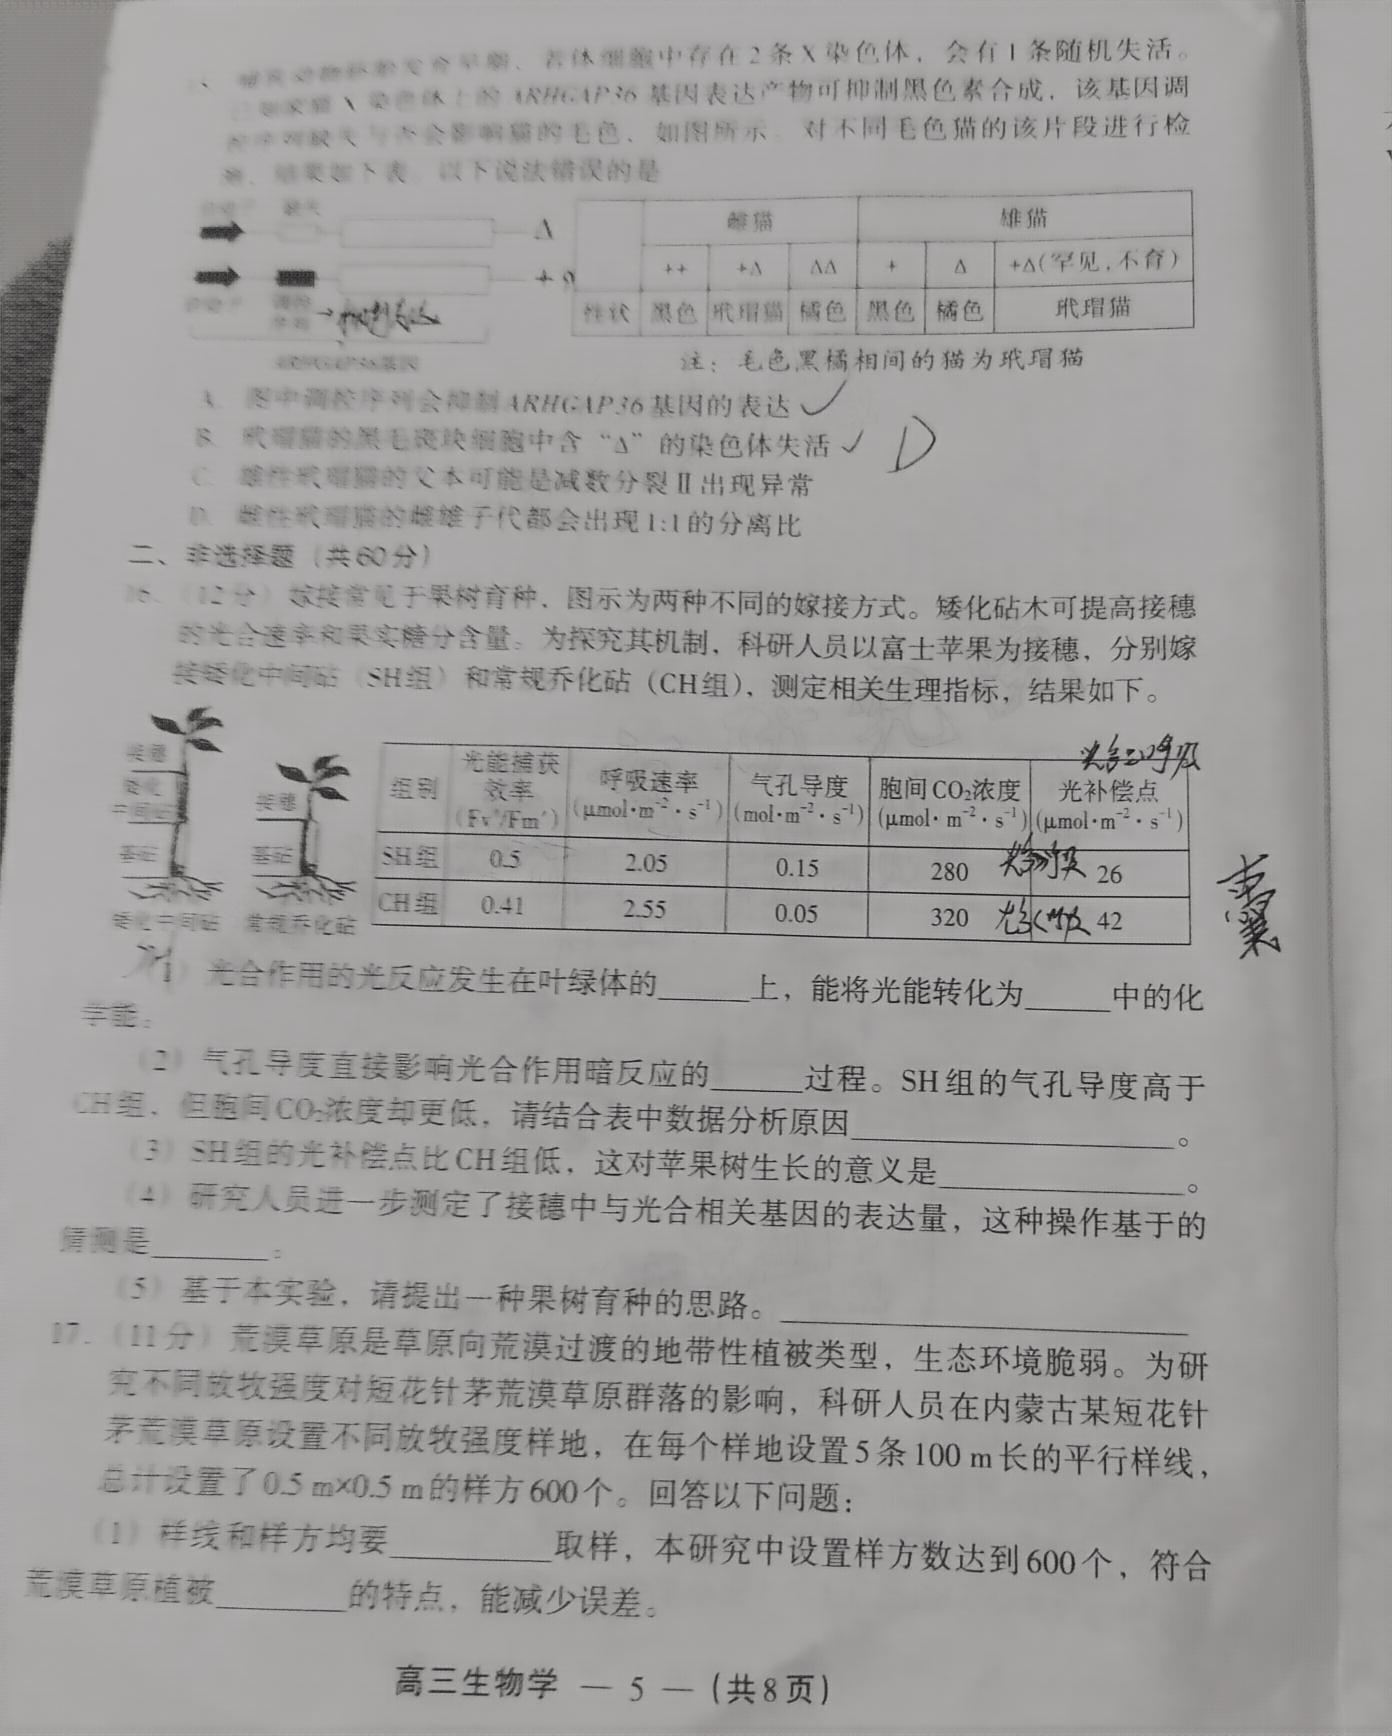 体细胞中存在2条X染色体，会有1条随机失活。
X染色体上的ARHGAP36基因表达产物可抑制黑色素合成，该基因调
会影响猫的毛色，如图所示。对不同毛色猫的该片段进行检
结果如下表。以下说法错误的是
雌猫 雄猫
Δ
++ +Δ ΔΔ + Δ +Δ(罕见，不育)
+
性状 黑色 玳瑁猫 橘色 黑色 橘色 玳瑁猫
ARHGAP36基因
注：毛色黑橘相间的猫为玳瑁猫
A. 图中调控序列会抑制ARHGAP36基因的表达
B. 玳瑁猫的黑毛斑块细胞中含“Δ”的染色体失活
D
C. 雄性玳瑁猫的父本可能是减数分裂Ⅱ出现异常
D. 雌性玳瑁猫的雌雄子代都会出现1:1的分离比
二、非选择题（共60分）
16.（12分）嫁接常见于果树育种，图示为两种不同的嫁接方式。矮化砧木可提高接穗
的光合速率和果实糖分含量。为探究其机制，科研人员以富士苹果为接穗，分别嫁
接矮化中间砧（SH组）和常规乔化砧（CH组），测定相关生理指标，结果如下。
接穗
矮化
中间砧
基砧
矮化中间砧
接穗
基砧
常规乔化砧
光合=呼吸
组别 光能捕获效率(Fv′/Fm′) 呼吸速率(μmol·m⁻²·s⁻¹) 气孔导度(mol·m⁻²·s⁻¹) 胞间CO₂浓度(μmol·m⁻²·s⁻¹) 光补偿点(μmol·m⁻²·s⁻¹)
SH组 0.5 2.05 0.15 280 26
CH组 0.41 2.55 0.05 320 42
（1）光合作用的光反应发生在叶绿体的______上，能将光能转化为______中的化
学能。
（2）气孔导度直接影响光合作用暗反应的______过程。SH组的气孔导度高于
CH组，但胞间CO₂浓度却更低，请结合表中数据分析原因______。
（3）SH组的光补偿点比CH组低，这对苹果树生长的意义是______。
（4）研究人员进一步测定了接穗中与光合相关基因的表达量，这种操作基于的
猜测是______。
（5）基于本实验，请提出一种果树育种的思路。______
17.（11分）荒漠草原是草原向荒漠过渡的地带性植被类型，生态环境脆弱。为研
究不同放牧强度对短花针茅荒漠草原群落的影响，科研人员在内蒙古某短花针
茅荒漠草原设置不同放牧强度样地，在每个样地设置5条100 m长的平行样线，
总计设置了0.5 m×0.5 m的样方600个。回答以下问题：
（1）样线和样方均要______取样，本研究中设置样方数达到600个，符合
荒漠草原植被______的特点，能减少误差。
高三生物学 — 5 —（共8页）